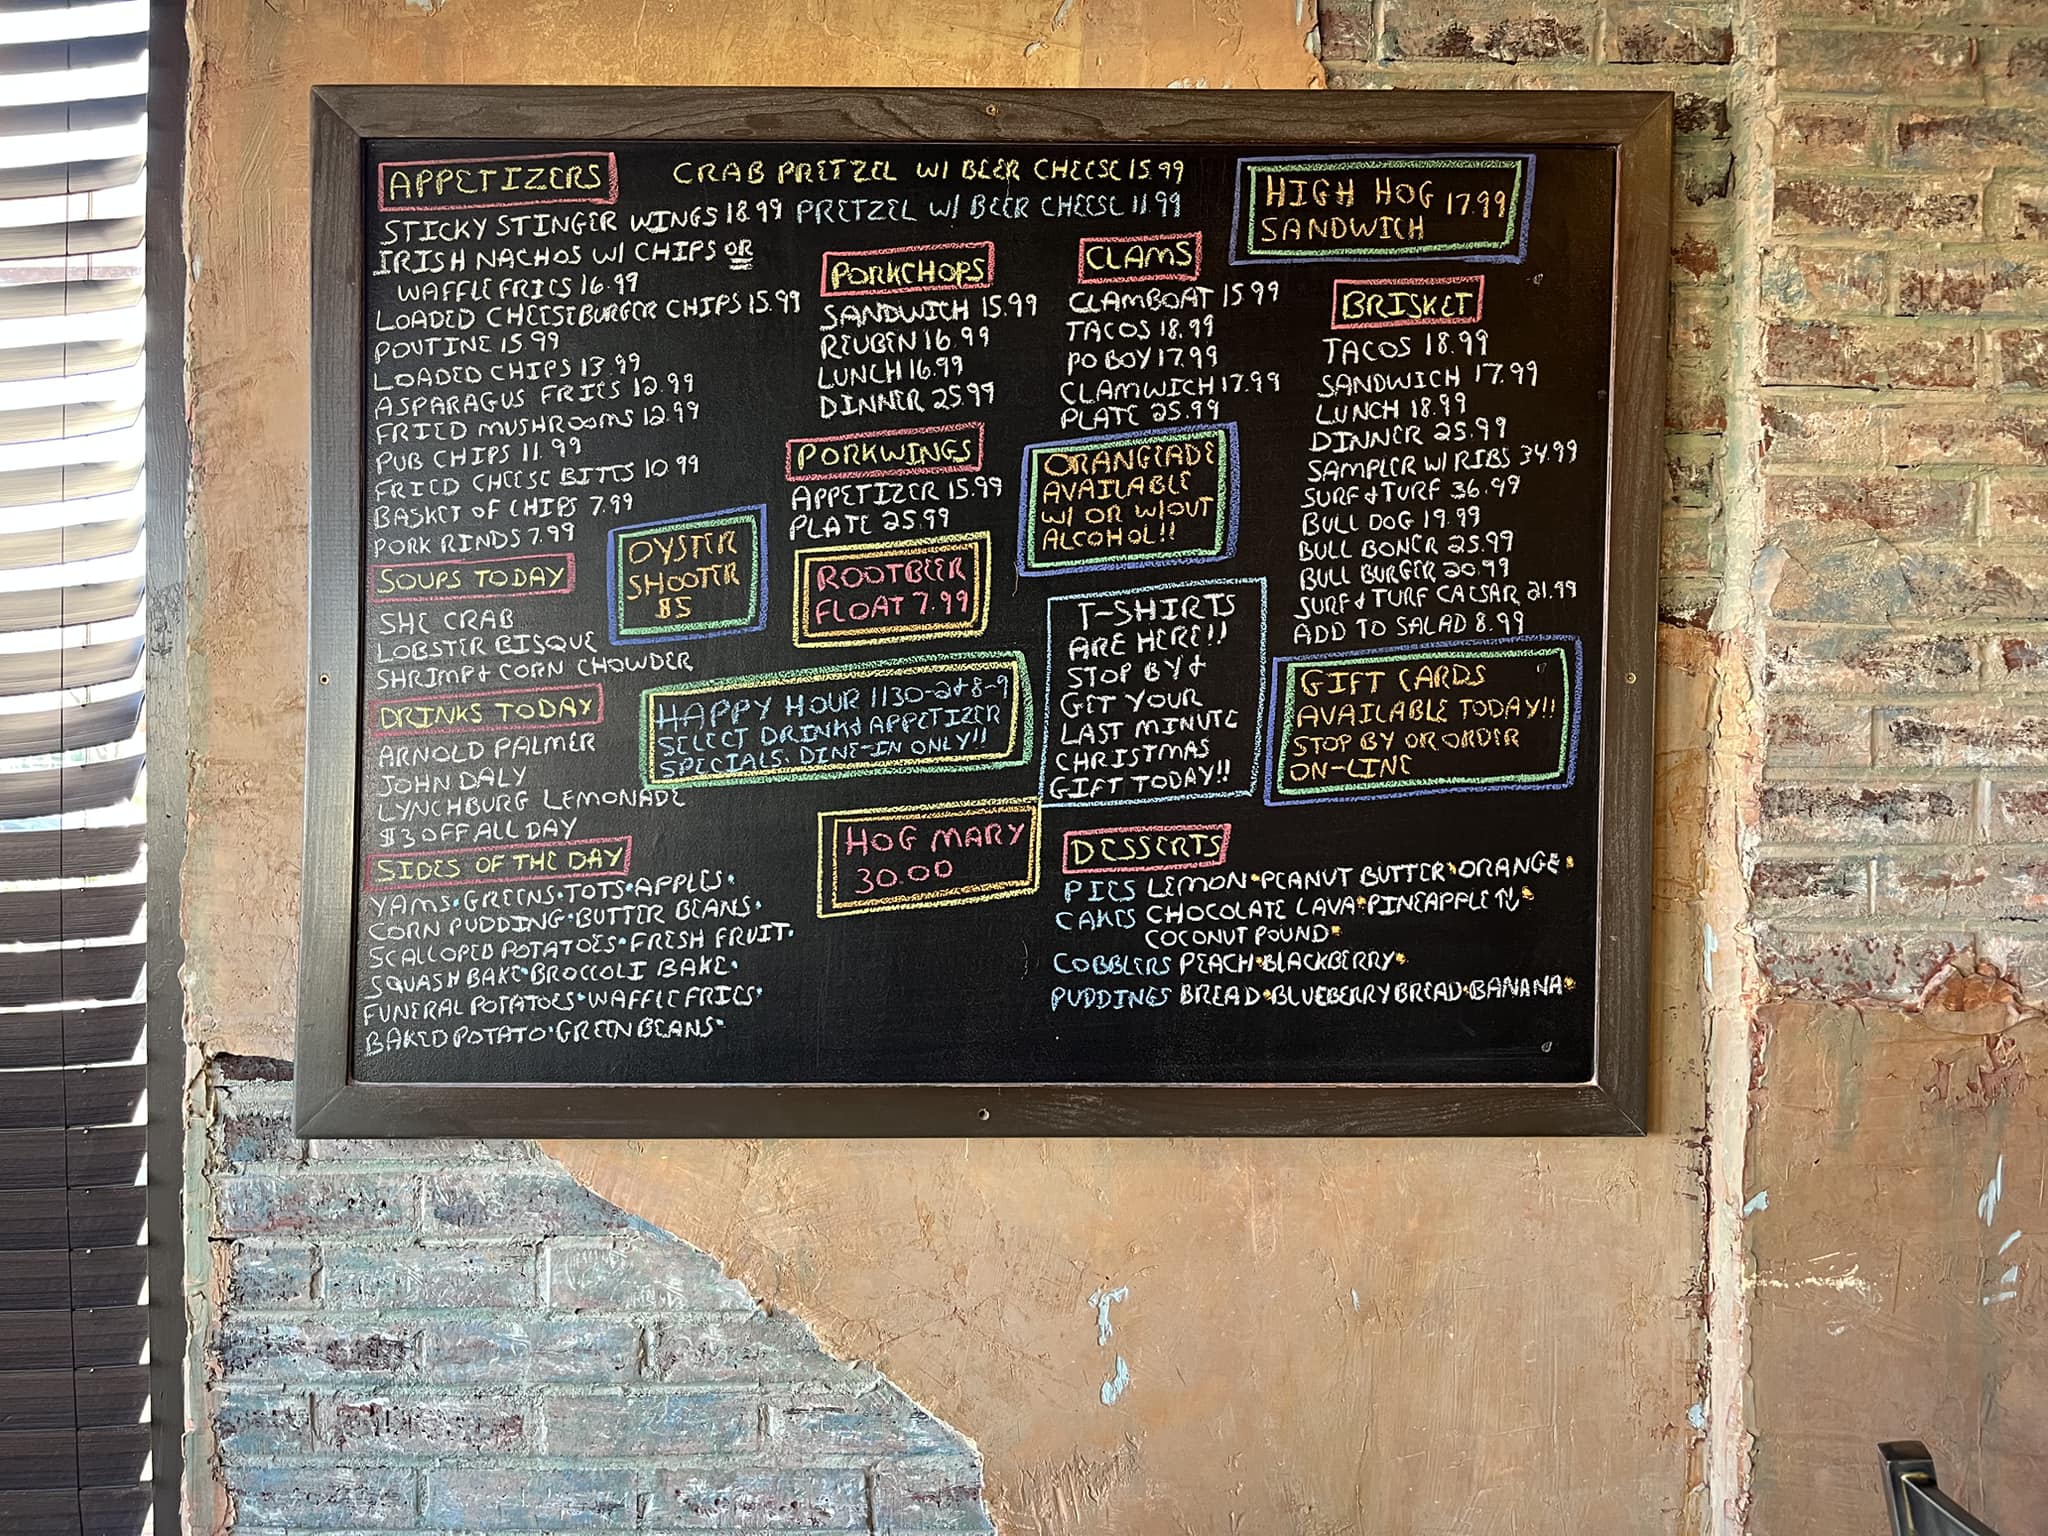 APPETIZERS
CRAB PRETZEL W/ BEER CHEESE 15.99
STICKY STINGER WINGS 18.99
PRETZEL W/ BEER CHEESE 11.99
IRISH NACHOS W/ CHIPS OR
WAFFLE FRIES 16.99
LOADED CHEESEBURGER CHIPS 15.99
POUTINE 15.99
LOADED CHIPS 13.99
ASPARAGUS FRIES 12.99
FRIED MUSHROOMS 12.99
PUB CHIPS 11.99
FRIED CHEESE BITTS 10.99
BASKET OF CHIPS 7.99
PORK RINDS 7.99
SOUPS TODAY
SHE CRAB
LOBSTER BISQUE
SHRIMP & CORN CHOWDER
DRINKS TODAY
ARNOLD PALMER
JOHN DALY
LYNCHBURG LEMONADE
$3 OFF ALL DAY
SIDES OF THE DAY
YAMS·GREENS·TOTS·APPLES·
CORN PUDDING·BUTTER BEANS·
SCALLOPED POTATOES·FRESH FRUIT·
SQUASH BAKE·BROCCOLI BAKE·
FUNERAL POTATOES·WAFFLE FRIES·
BAKED POTATO·GREEN BEANS·
PORKCHOPS
SANDWICH 15.99
REUBEN 16.99
LUNCH 16.99
DINNER 25.99
PORKWINGS
APPETIZER 15.99
PLATE 25.99
OYSTER
SHOOTER
$5
ROOTBEER
FLOAT 7.99
HAPPY HOUR 1130-2 & 8-9
SELECT DRINK & APPETIZER
SPECIALS. DINE-IN ONLY!!
HOG MARY
30.00
CLAMS
CLAMBOAT 15.99
TACOS 18.99
PO BOY 17.99
CLAMWICH 17.99
PLATE 25.99
ORANGEADE
AVAILABLE
W/ OR W/OUT
ALCOHOL!!
T-SHIRTS
ARE HERE!!
STOP BY &
GET YOUR
LAST MINUTE
CHRISTMAS
GIFT TODAY!!
HIGH HOG 17.99
SANDWICH
BRISKET
TACOS 18.99
SANDWICH 17.99
LUNCH 18.99
DINNER 25.99
SAMPLER W/ RIBS 34.99
SURF & TURF 36.99
BULL DOG 19.99
BULL BONER 25.99
BULL BURGER 20.99
SURF & TURF CAESAR 21.99
ADD TO SALAD 8.99
GIFT CARDS
AVAILABLE TODAY!!
STOP BY OR ORDER
ON-LINE
DESSERTS
PIES LEMON·PEANUT BUTTER·ORANGE·
CAKES CHOCOLATE LAVA·PINEAPPLE ↑↓·
COCONUT POUND·
COBBLERS PEACH·BLACKBERRY·
PUDDINGS BREAD·BLUEBERRY BREAD·BANANA·